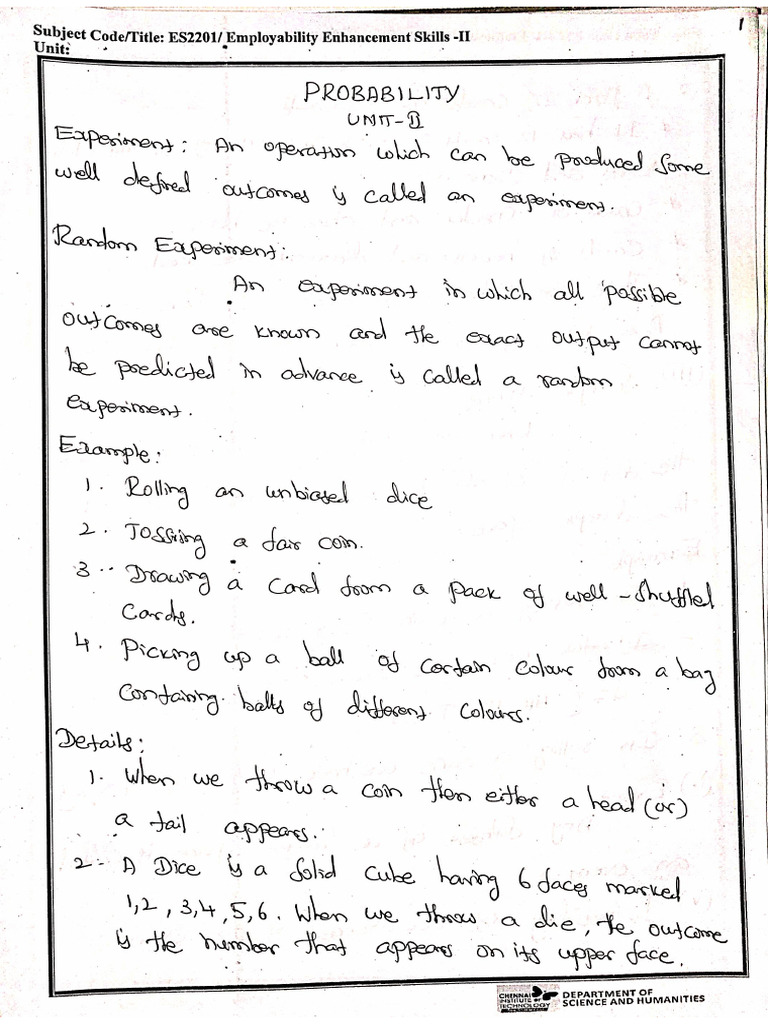 1
Subject Code/Title: ES2201/ Employability Enhancement Skills -II
Unit:
PROBABILITY
UNIT-II
Experiment: An operation which can be produced some
well defined outcomes is called an experiment.
Random Experiment:
An experiment in which all possible
outcomes are known and the exact output cannot
be predicted in advance is called a random
experiment.
Example:
1. Rolling an unbiased dice
2. Tossing a fair coin.
3. Drawing a card from a pack of well-shuffled
cards.
4. Picking up a ball of certain colour from a bag
containing balls of different colours.
Details:
1. When we throw a coin then either a head (or)
a tail appears.
2. A Dice is a solid cube having 6 faces marked
1,2,3,4,5,6. When we throw a die, the outcome
is the number that appears on its upper face.
CHENNAI
INSTITUTE OF
TECHNOLOGY
DEPARTMENT OF
SCIENCE AND HUMANITIES